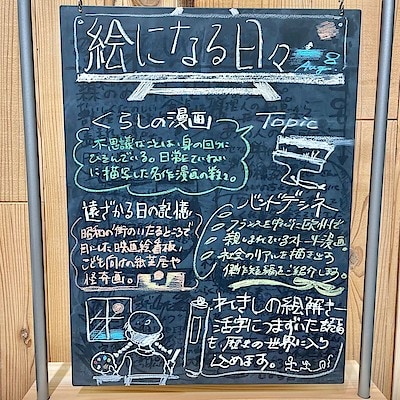 絵になる日々
8
Aug.
くらしの漫画
Topic
不思議なことは、身の回りに
ひそんでいる。日常をていねい
に描写した名作漫画の数々。
遠ざかる日の記憶
昭和の街のいたるところで
目にした映画絵看板、
こども向けの紙芝居や
怪奇画。
バンドデシネ
フランスを中心に
親しまれているストーリー漫画。
社会のリアルを描き出す
傑作短編をご紹介します。
れきしの絵解き
活字につまずいた
も、歴史の世界に入り
込めます。